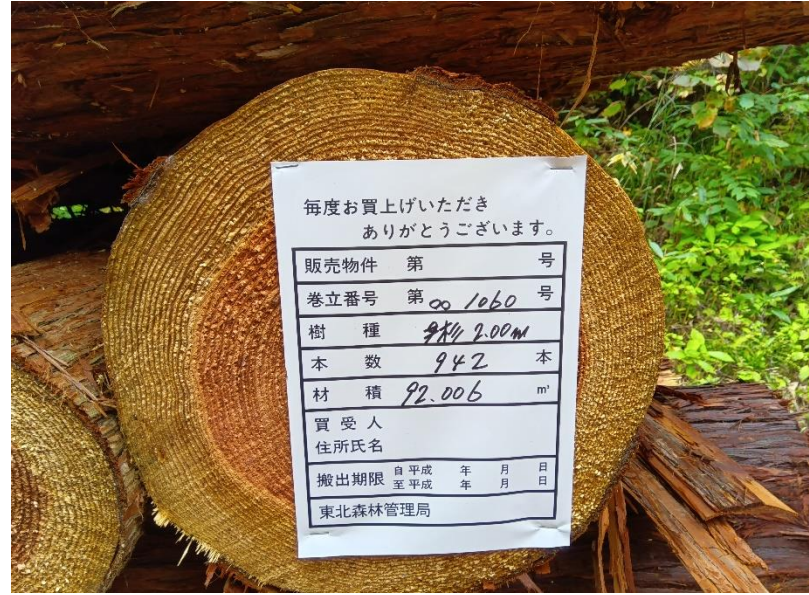 毎度お買上げいただき
ありがとうございます。
販売物件 第 号
巻立番号 第 001060 号
樹種 杉 2.00m
本数 942 本
材積 92.006 m³
買受人
住所氏名
搬出期限 自 平成 年 月 日
至 平成 年 月 日
東北森林管理局